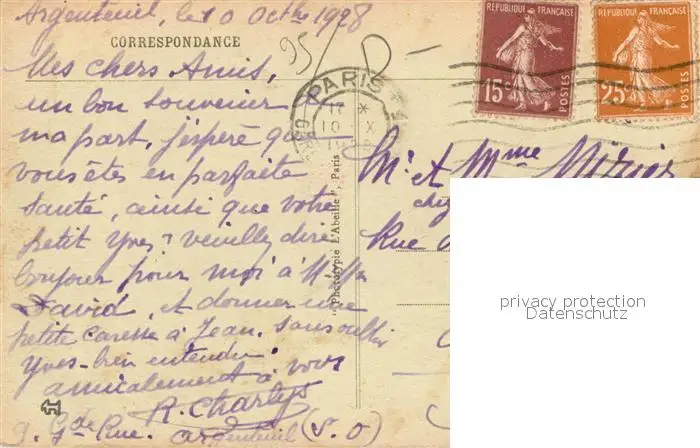 Argenteuil, le 10 Octbre 1928
CORRESPONDANCE
95/ D-
Mes chers Amis,
un bon souvenir de
ma part, j'espère que
vous êtes en parfaite
santé, ainsi que votre
petit Yves, veuillez dire
bonjour pour moi à Mlle
David, et donner une
petite caresse à Jean. Sans oublier
Yves-bien entendu.
amicalement à vous
R. Charlys
9. Gde Rue. Argenteuil (S. O)
"Phototypie L'Abeille", Paris
PARIS
17 *
10 X
REPUBLIQUE FRANÇAISE
15c
POSTES
REPUBLIQUE FRANÇAISE
25c
POSTES
Mr et Mme
chez
Rue
privacy protection
Datenschutz